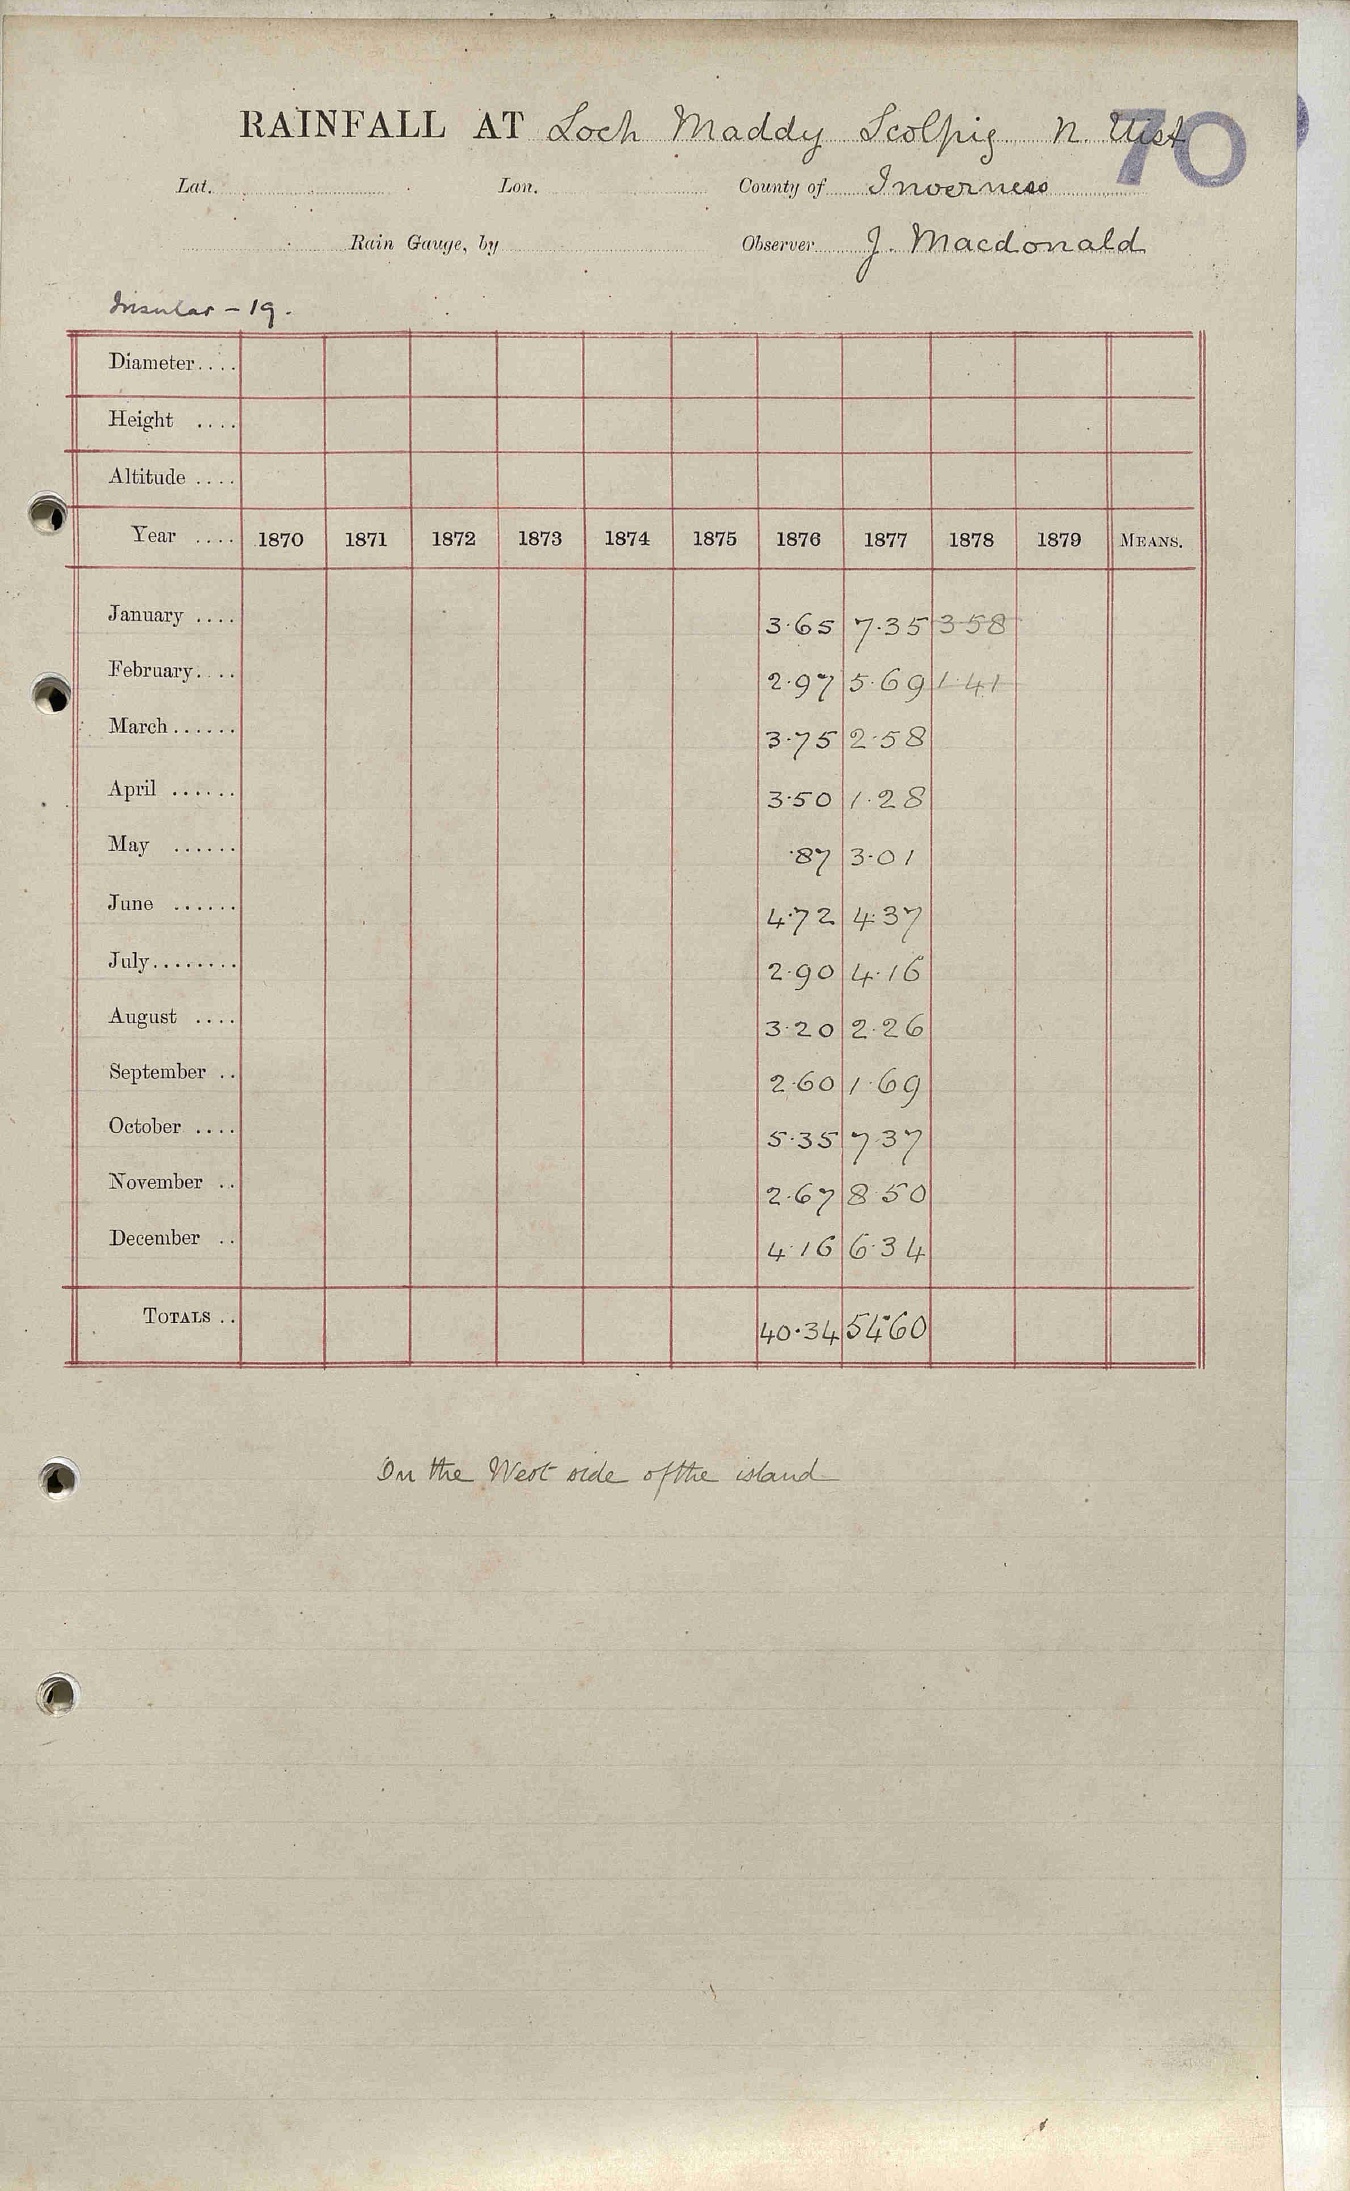 RAINFALL AT Loch Maddy Scolpig N. Uist 70
Lat. Lon. County of Inverness
Rain Gauge, by Observer J. Macdonald
Insular - 19.
Diameter....
Height ....
Altitude ....
Year .... 1870 1871 1872 1873 1874 1875 1876 1877 1878 1879 MEANS.
January .... 3.65 7.35 3.58
February.... 2.97 5.69 1.41
March...... 3.75 2.58
April ...... 3.50 1.28
May ...... .87 3.01
June ...... 4.72 4.37
July........ 2.90 4.16
August .... 3.20 2.26
September .. 2.60 1.69
October .... 5.35 7.37
November .. 2.67 8.50
December .. 4.16 6.34
TOTALS .. 40.34 54.60
On the West side of the island